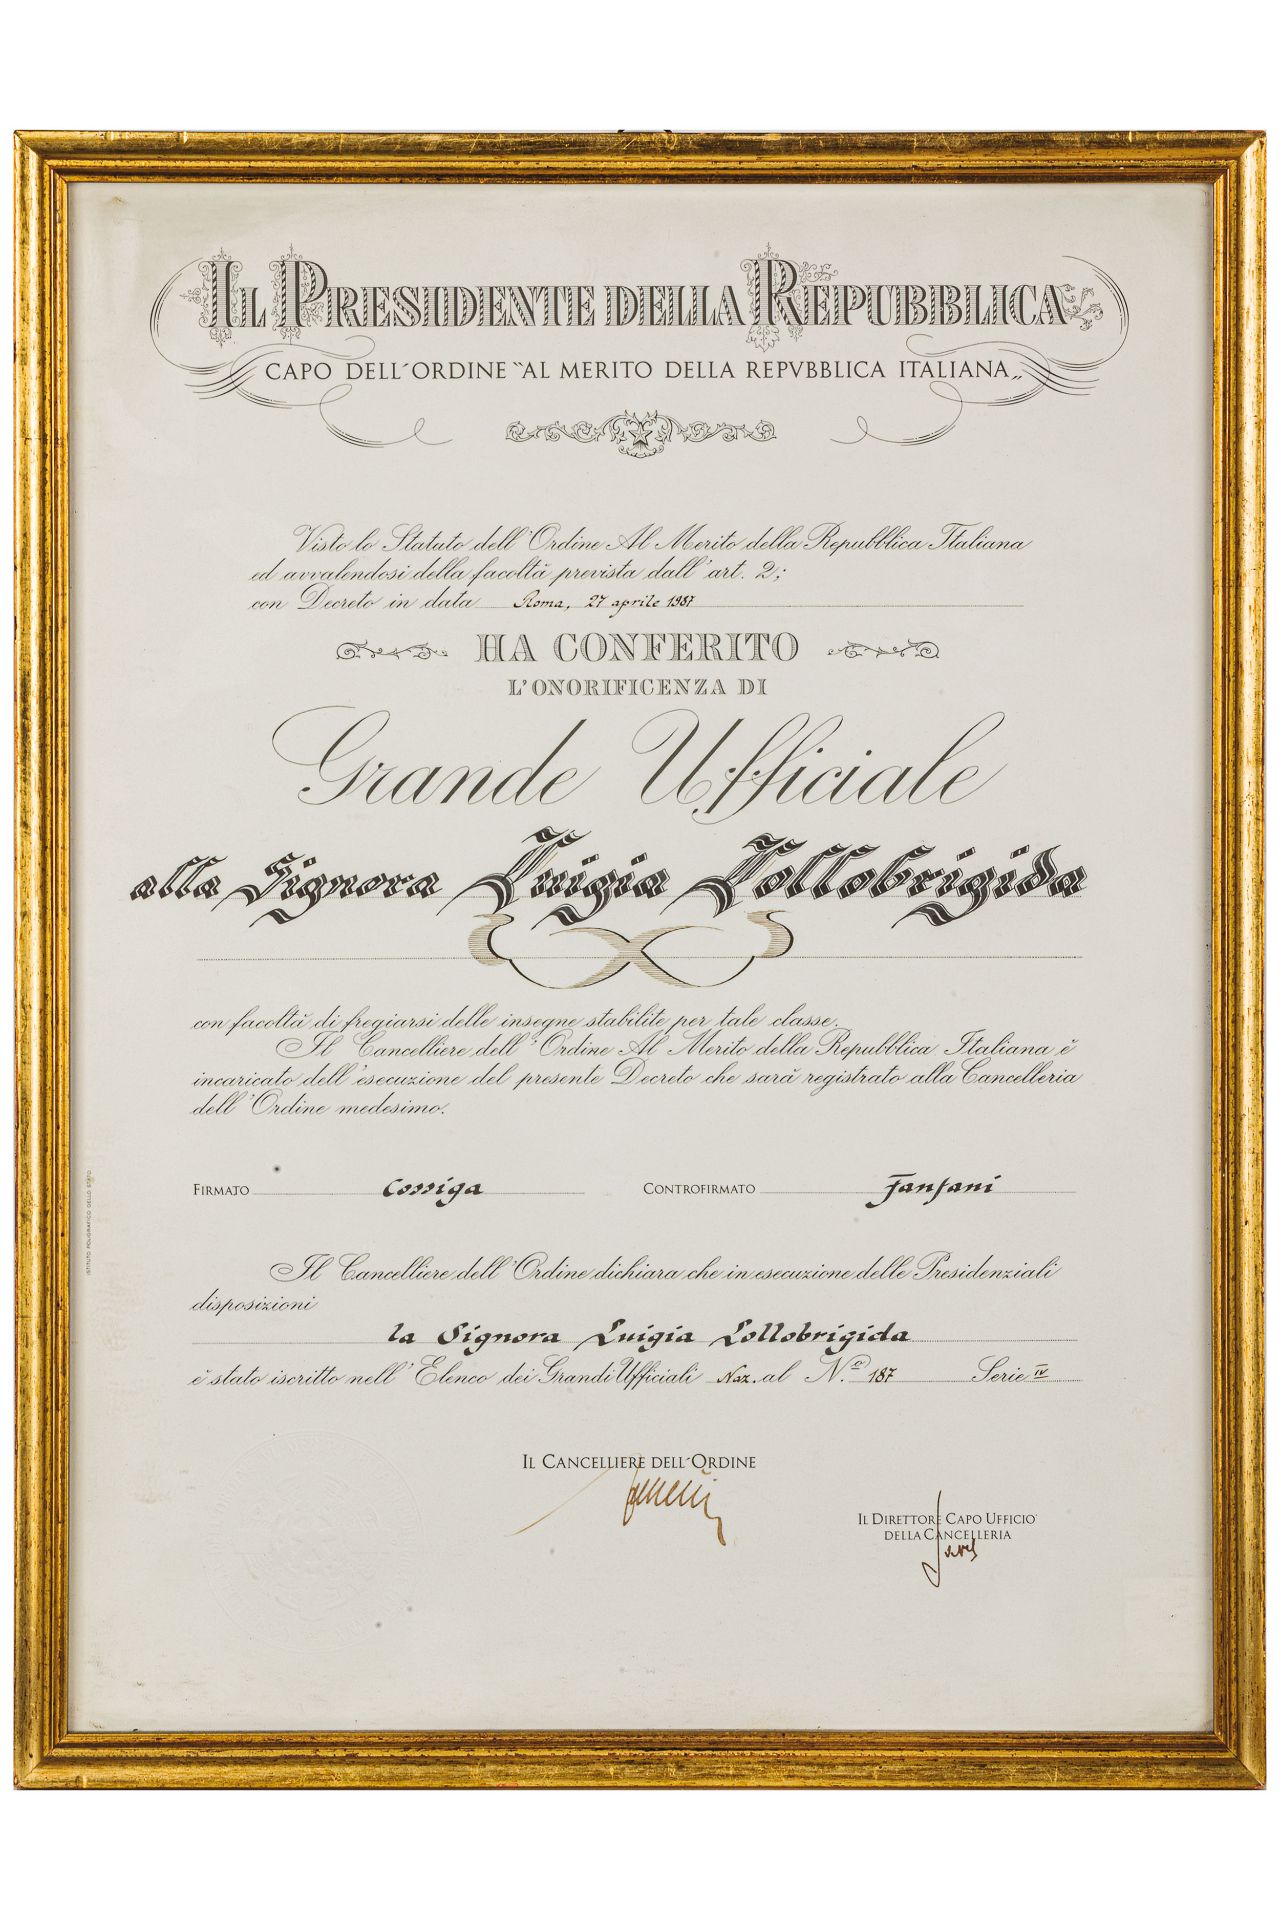 IL PRESIDENTE DELLA REPUBBLICA
CAPO DELL'ORDINE "AL MERITO DELLA REPVBBLICA ITALIANA„
Visto lo Statuto dell'Ordine Al Merito della Repubblica Italiana
ed avvalendosi della facoltà prevista dall'art. 2;
con Decreto in data Roma, 27 aprile 1987
HA CONFERITO
L'ONORIFICENZA DI
Grande Ufficiale
alla Signora Luigia Lollobrigida
con facoltà di fregiarsi delle insegne stabilite per tale classe.
Il Cancelliere dell'Ordine Al Merito della Repubblica Italiana è
incaricato dell'esecuzione del presente Decreto che sarà registrato alla Cancelleria
dell'Ordine medesimo.
FIRMATO Cossiga CONTROFIRMATO Fanfani
Il Cancelliere dell'Ordine dichiara che in esecuzione delle Presidenziali
disposizioni
la Signora Luigia Lollobrigida
è stato iscritto nell'Elenco dei Grandi Ufficiali Naz. al N.º 187 Serie IV
IL CANCELLIERE DELL'ORDINE
IL DIRETTORE CAPO UFFICIO
DELLA CANCELLERIA
ISTITUTO POLIGRAFICO DELLO STATO